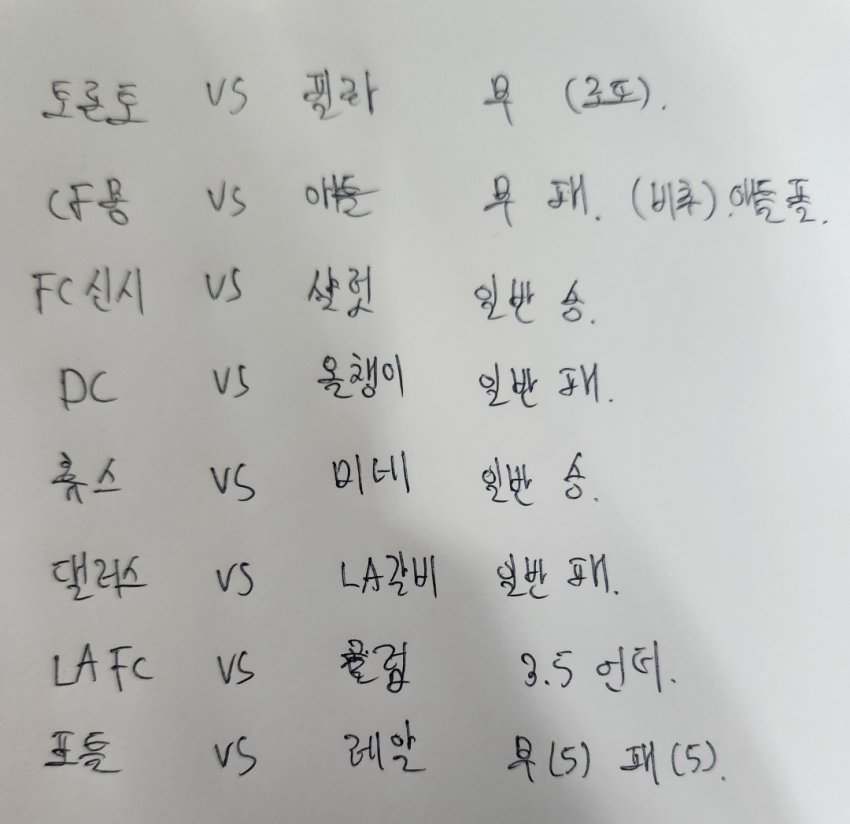 토론토 VS 필라 무 (로또).
CF몽 VS 애틀 무 패. (비추). 애틀 풀.
FC신시 VS 샬럿 일반 승.
DC VS 올챙이 일반 패.
휴스 VS 미네 일반 승.
댈러스 VS LA갈비 일반 패.
LAFC VS 콜럼 3.5 언더.
포틀 VS 레알 무(5) 패(5).